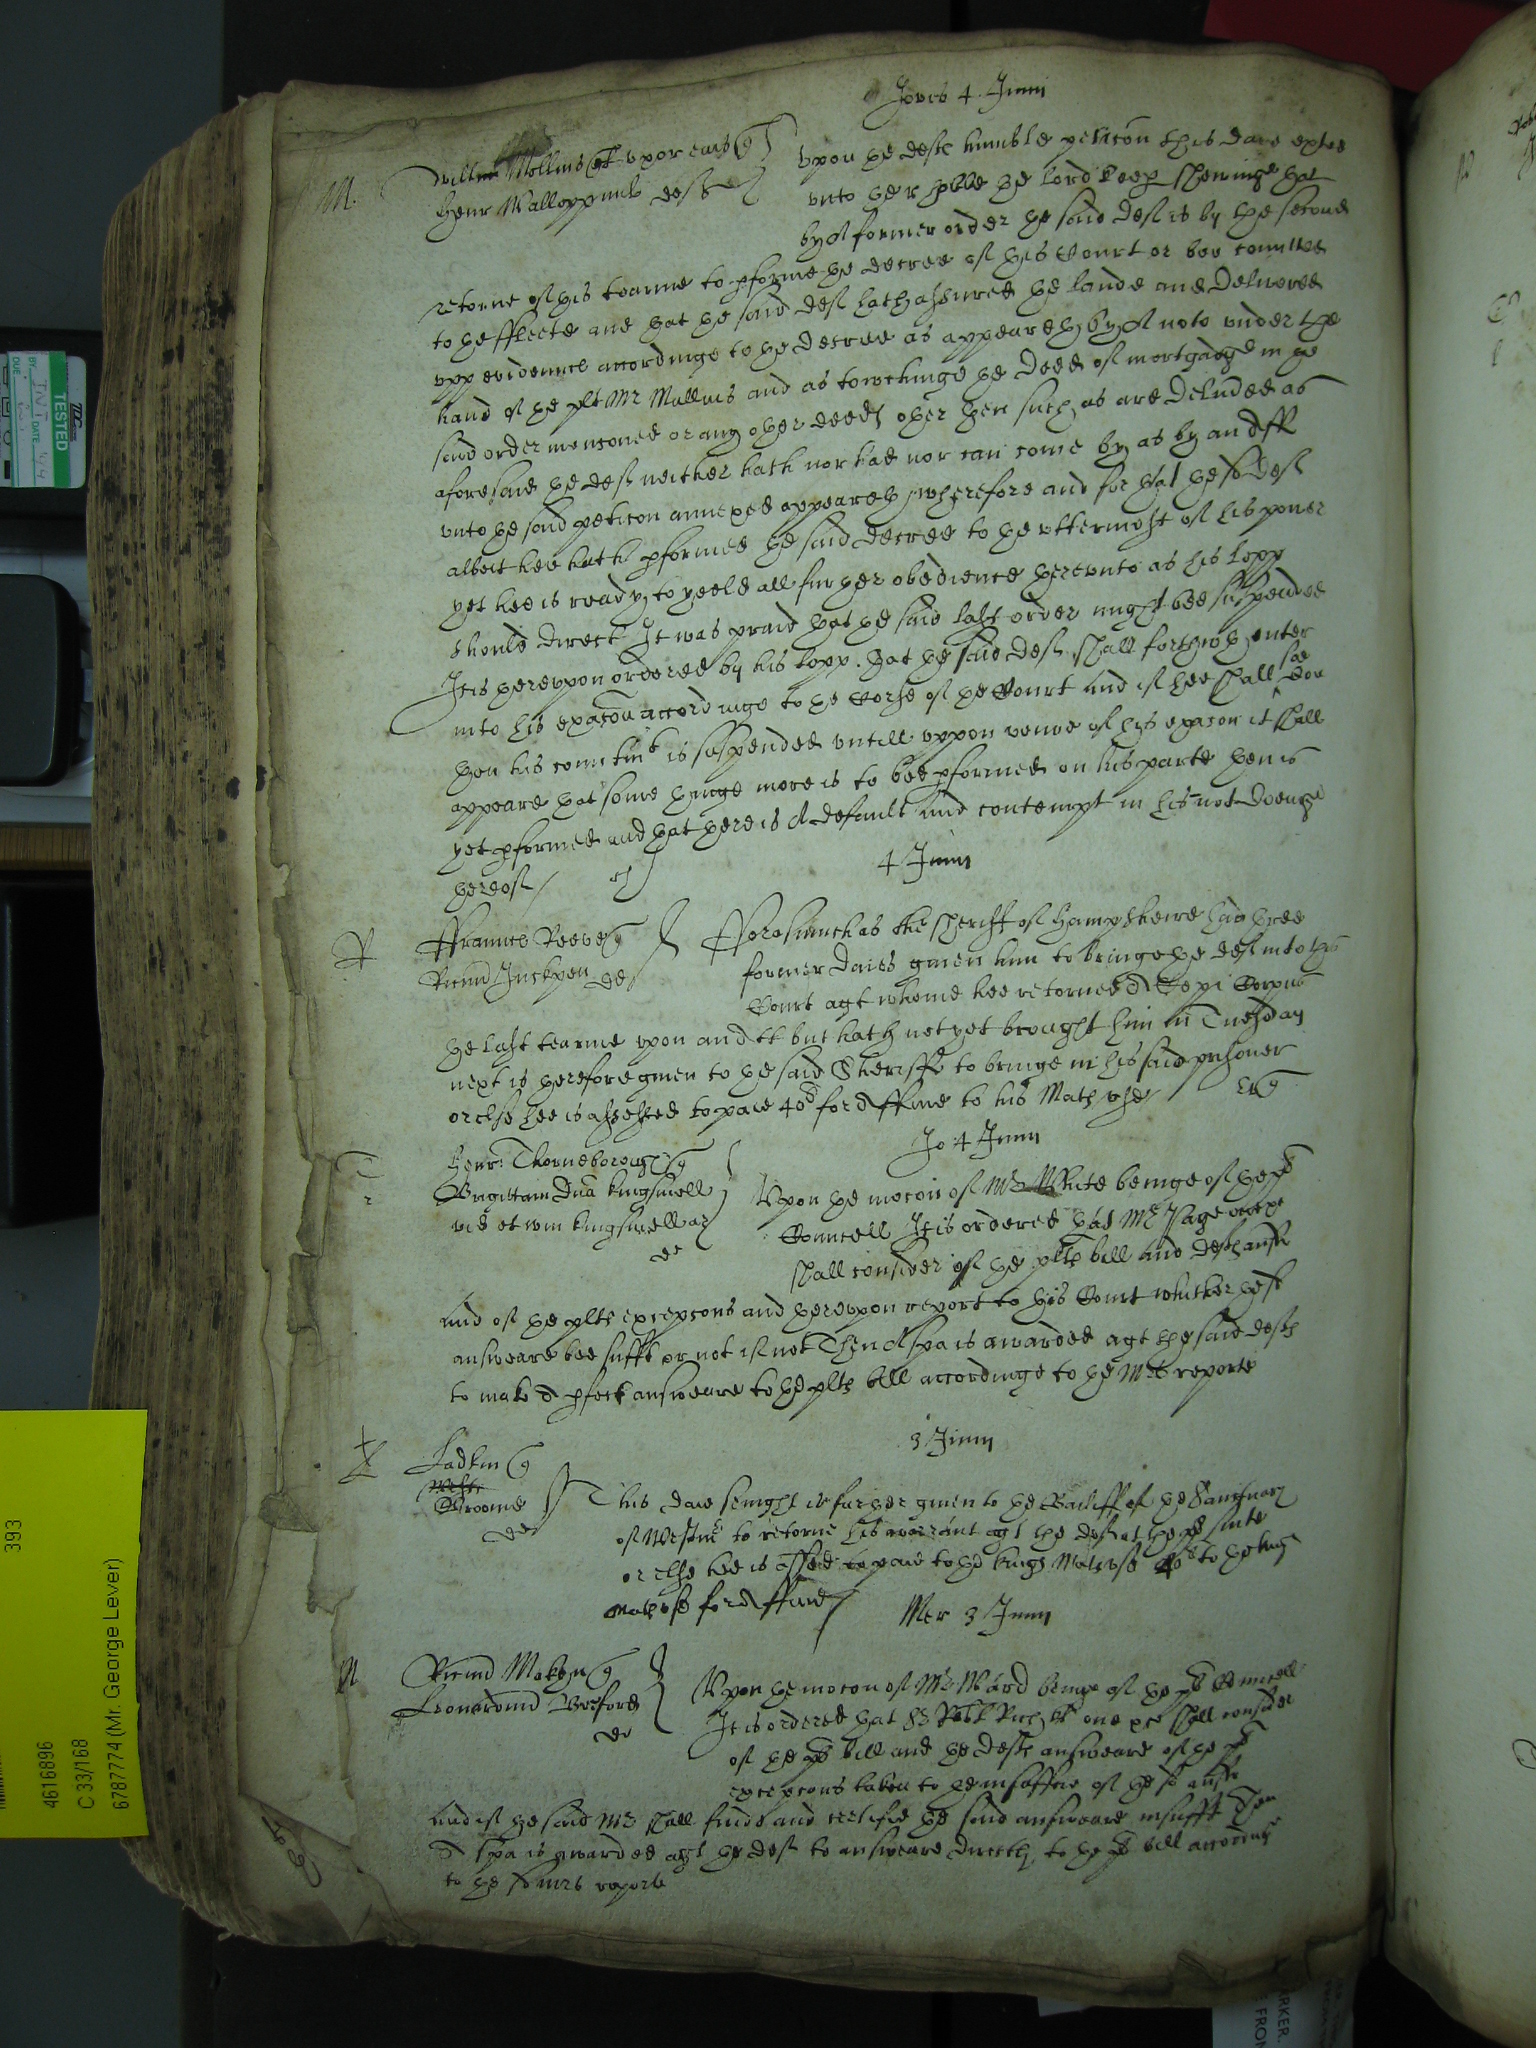 Jovis 4 Junii
M. Willm Mollins et uxor eius q
Henr Wallopp mil deft
Upon the defts humble peticon this daie exhited
unto the r hoble the lord keep shewinge that
by a former order the said deft is by the second
retorne of this tearme to pforme the decree of this Court or bee comitted
to the fleete and that the said deft hath assured the lande and delivered
upp evidence accordinge to the decree as appeareth by a note under the
hand of the plt Mr Mollins and as towchinge the deed of mortgadge in the
said order menconed or any other deeds other then such as are delivered as
aforesaid the deft neither hath nor had nor can come by as by an afft
unto the said peticon annexed appeareth wherefore and for that the sd deft
albeit hee hath pformed the said decree to the uttermost of his power
yet hee is ready to yeeld all further obedience thereunto as his lopp
should direct It was praid that the said last order might bee suspended
It is thereuppon ordered by his lopp. that the said deft shall forthwth enter
into his exacon accordinge to the corse of the Court And if hee shall soe doe
then his comitmt is suspended untill uppon vewe of his exacon it shall
appeare that some thinge more is to bee pformed on his parte then is
yet pformed and that there is a default and contempt in his not doeinge
thereof
4 Junii
R Frances Reeve q
Ricus Juckpen def
Forasmuch as the Sheriff of Hampsheire had three
former daies given him to bringe the deft into this
Court agt whome hee retorned a Cepi Corpus
the last tearme upon an att but hath not yet brought him in Tuesday
next is therefore given to the said Sheriffe to bringe in his said prisoner
or else hee is assessed to paie 40s for a ffine to his Mats use
Jo: 4 Junii
T Henr: Thorneborough q
Brigittam Dna Kingsmell
vid et wm Kingsmell ar
def
Upon the mocon of Mr White beinge of the pts
Councell It is ordered that Mr Page
shall consider of the plts bill and defts answ
And of the plts excepcons and thereuppon report to this Court whether the sd
answeare bee sufft or not if not Then a spa is awarded agt the said defts
to make a pfect answeare to the plts bill accordinge to the Mrs reporte
3 Junii
L Ladkin q
Groome
def
This daie senight is further given to the Bailiff of the Sanctuary
of Westmr to retorne his warrant agt the deft at the pts suite
or else hee is assed to paie to the kings Mats use 40s to the kings
Mats use for a ffine
Mer 3 Junii
M Ricus Makyn q
Leonardum Bereford
def
Upon the mocon of Mr Ward beinge of the pts Councell
It is ordered that Sr Robt Rich Kt one &c shall consider
of the pts bill and the defts answeare of the pts
excepcons taken to the insufficie of the sd answ
And if the said Mr shall finde and certifie the said answeare insufft Then
a spa is awarded agt the deft to answeare directly to the pts bill accordinge
to the sd mrs reporte
TESTED
393
4616896
C 33/168
6787774 (Mr. George Lever)